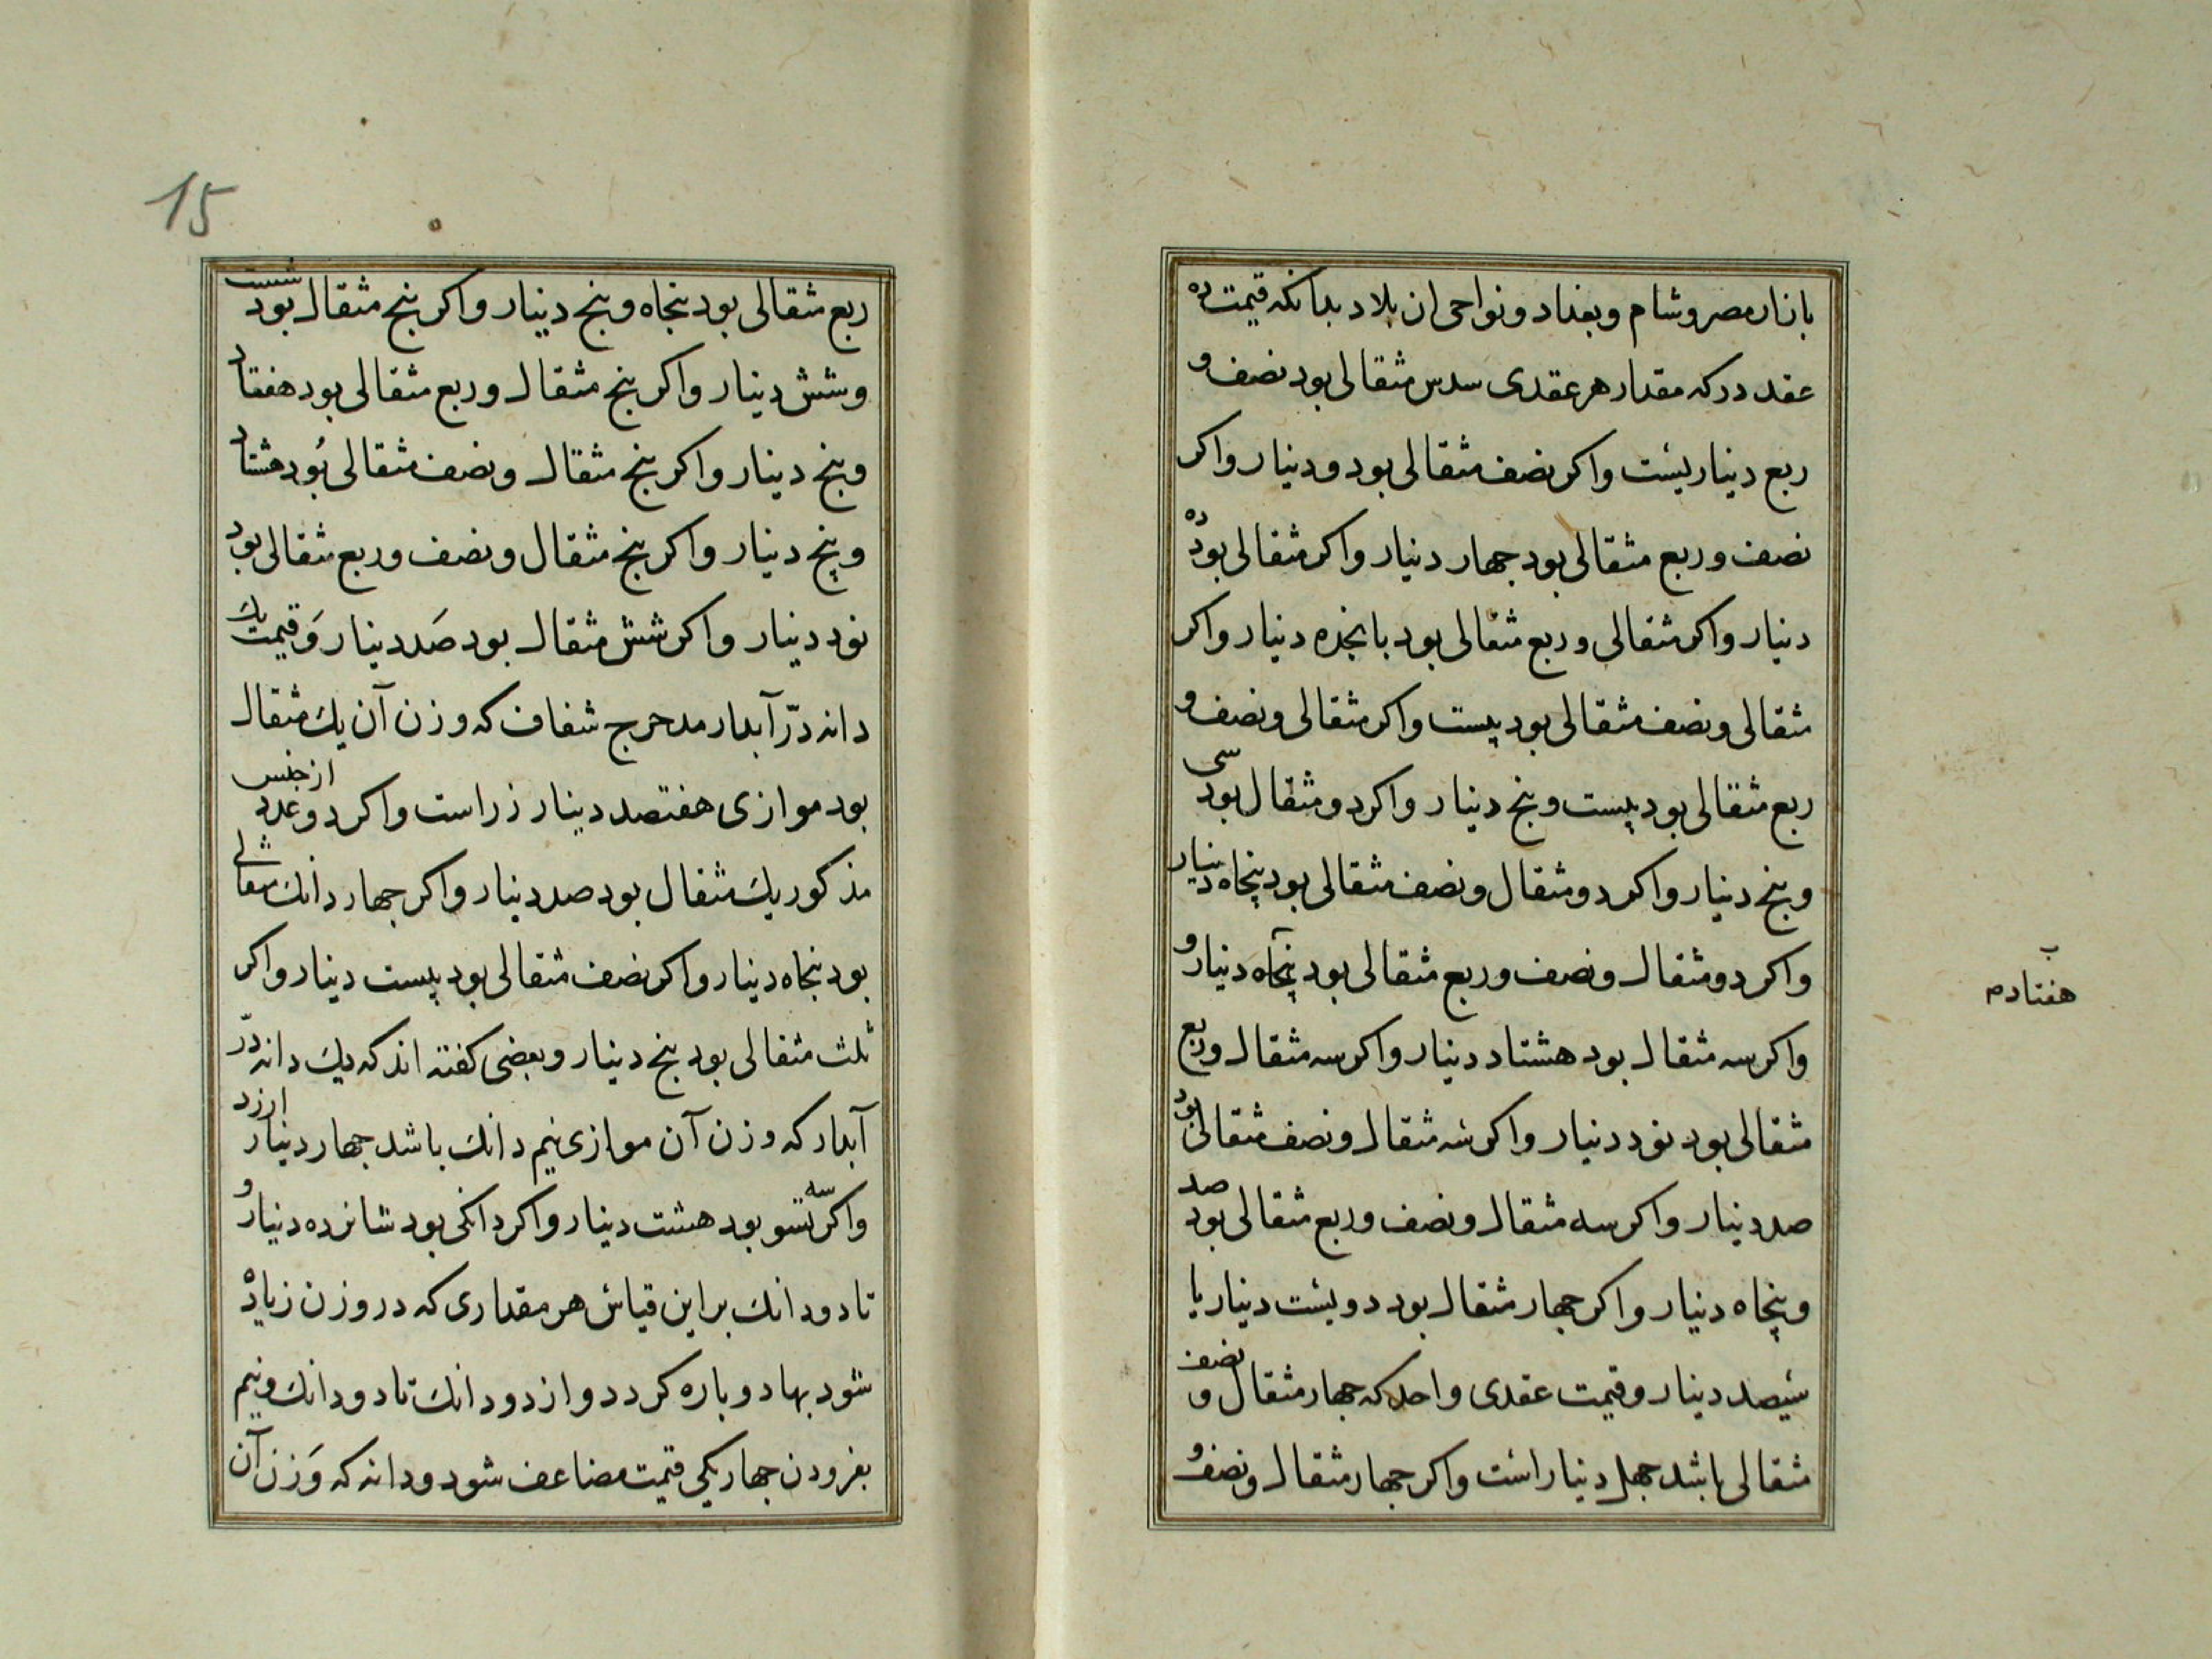 بازار مصر و شام و بغداد و نواحی ان بلاد بدانکه قیمت ده
عقد در که مقدار هر عقدی سدس مثقالی بود نصف و
ربع دیناریست واکر نصف مثقالی بود دو دینار واکر
نصف و ربع مثقالی بود جهار دینار واکر مثقالی بود ده
دینار واکر مثقالی و ربع مثقالی بود بانجده دینار واکر
مثقالی و نصف مثقالی بود بیست واکر مثقالی و نصف و
ربع مثقالی بود بیست و بنج دینار واکر دو مثقال بود سی
و بنج دینار واکر دو مثقال و نصف مثقالی بود پنجاه دینار
واکر دو مثقال و نصف و ربع مثقالی بود پنجاه دینار و
واکر سه مثقال بود هشتاد دینار واکر سه مثقال و ربع
مثقالی بود نود دینار واکر سه مثقال و نصف مثقالی بود
صد دینار واکر سه مثقال و نصف و ربع مثقالی بود صد
و پنجاه دینار واکر جهار مثقال بود دویست دینار یا
سیصد دینار و قیمت عقدی واحد که جهار مثقال و نصف
مثقالی باشد جهل دینار است واکر جهار مثقال و نصف و
هفتادم
15
ربع مثقالی بود بنجاه و بنج دینار واکر بنج مثقال بود شست
و شش دینار واکر بنج مثقال و ربع مثقالی بود هفتاد
و بنج دینار واکر بنج مثقال و نصف مثقالی بُود هشتاد
و پنج دینار واکر بنج مثقال و نصف و ربع مثقالی بود
نود دینار واکر شش مثقال بود صَد دینار وَ قیمت یك
دانه درّ آبدار مدحرج شفاف که وزن آن یك مثقال
بود موازی هفتصد دینار زر است واکر دو عدد از جنس
مذکور یك مثقال بود صد دینار واکر جهار دانك مثقالی
بود بنجاه دینار واکر نصف مثقالی بود بیست دینار واکر
ثلث مثقالی بود بنج دینار و بعضی کفته اند که یك دانه درّ
آبدار که وزن آن موازی نیم دانك باشد جهار دینار ارزد
واکر سه تسو بود هشت دینار واکر دانکی بود شانزده دینار و
تا دو دانك بر این قیاس هر مقداری که در وزن زیاده
شود بها دو باره کردد و از دو دانك تا دو دانك و نیم
بفزودن جهار یکی قیمت مضاعف شود و دانه که وَزن آن